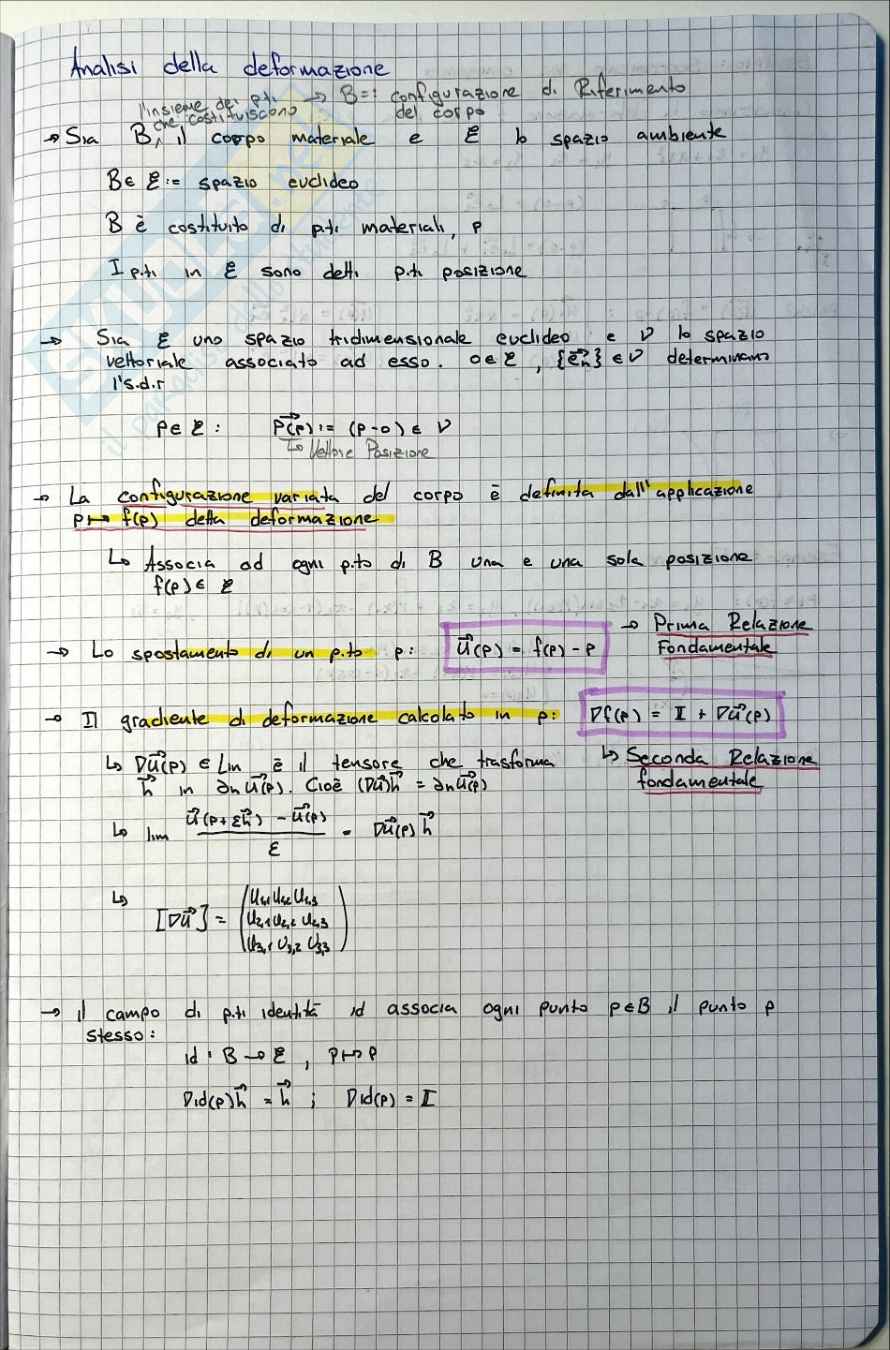 Analisi della deformazione
l'insieme dei p.ti che costituiscono → B=: configurazione di Riferimento del corpo
→ Sia B, il corpo materiale e ℰ lo spazio ambiente
B∈ ℰ:= spazio euclideo
B è costituito di p.ti materiali, p
I p.ti in ℰ sono detti p.ti posizione
→ Sia ℰ uno spazio tridimensionale euclideo e 𝒱 lo spazio
vettoriale associato ad esso. o∈ℰ, {e⃗ₕ}∈𝒱 determinano
l's.d.r
p∈ℰ: P⃗(p):= (p-o) ∈ 𝒱
↳ Vettore Posizione
→ La configurazione variata del corpo è definita dall'applicazione
p↦ f(p) detta deformazione
↳ Associa ad ogni p.to di B una e una sola posizione
f(p)∈ ℰ
→ Lo spostamento di un p.to p: u⃗(p) = f(p) - p → Prima Relazione
Fondamentale
→ Il gradiente di deformazione calcolato in p: ∇f(p) = I + ∇u⃗(p)
↳ ∇u⃗(p) ∈ Lin è il tensore che trasforma ↳ Seconda Relazione
h⃗ in ∂hu⃗(p). Cioè (∇u⃗)h⃗ = ∂hu⃗(p) fondamentale
↳ lim (u⃗(p+εh⃗) - u⃗(p)) / ε = ∇u⃗(p)h⃗
↳ [∇u⃗] = (u1,1 u1,2 u1,3
u2,1 u2,2 u2,3
u3,1 u3,2 u3,3)
→ il campo di p.ti identità id associa ogni punto p∈B il punto p
stesso:
id: B→ℰ, p↦p
∇id(p)h⃗ = h⃗ ; ∇id(p) = I
SKUOLA.net
il paradiso dello studente